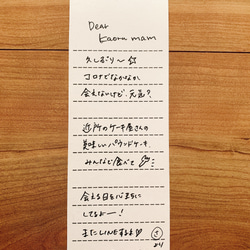 Dear
Kaoru mam
久しぶり〜
コロナでなかなか
会えないけど、元気?
近所のケーキ屋さんの
美味しいパウンドケーキ
みんなで食べて
会える日を心待ちに
してるよー!
またLINEするね
より